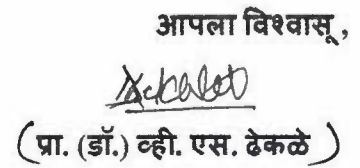 आपला विश्वासू,
( प्रा. (डॉ.) व्ही. एस. ढेकळे )